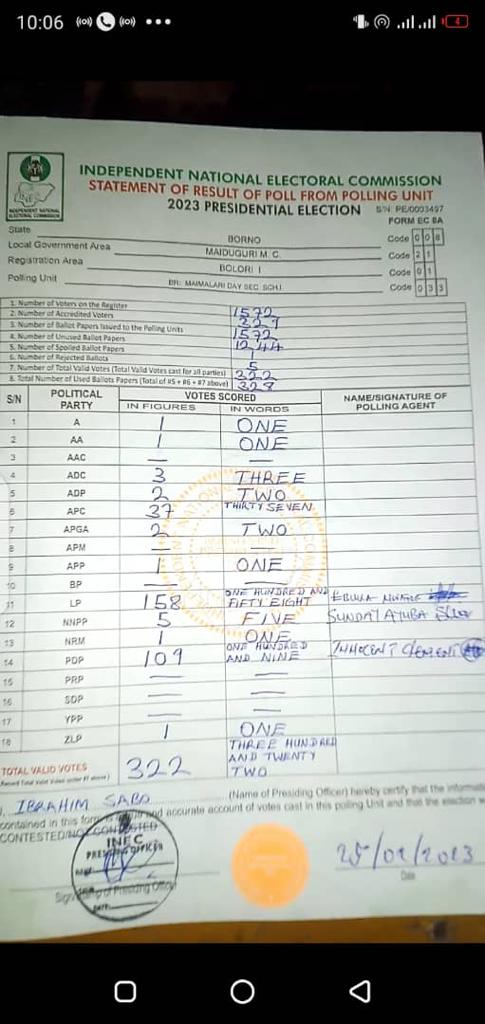 10:06
INDEPENDENT NATIONAL ELECTORAL COMMISSION
STATEMENT OF RESULT OF POLL FROM POLLING UNIT
2023 PRESIDENTIAL ELECTION S/N: PE/0003497
FORM EC 8A
State BORNO Code 0 0 8
Local Government Area MAIDUGURI M. C. Code 2 1
Registration Area BOLORI I Code 0 1
Polling Unit MAIMALARI DAY SEC. SCH. Code 0 3 3
1. Number of Voters on the Register 1572
2. Number of Accredited Voters
3. Number of Ballot Papers Issued to the Polling Units 1572
4. Number of Unused Ballot Papers 1244
5. Number of Spoiled Ballot Papers 1
6. Number of Rejected Ballots 5
7. Number of Total Valid Votes (Total Valid Votes cast for all parties) 322
8. Total Number of Used Ballots Papers (Total of #5 + #6 + #7 above) 328
S/N POLITICAL PARTY VOTES SCORED NAME/SIGNATURE OF POLLING AGENT
IN FIGURES IN WORDS
1 A 1 ONE
2 AA 1 ONE
3 AAC —
4 ADC 3 THREE
5 ADP 2 TWO
6 APC 37 THIRTY SEVEN
7 APGA 2 TWO
8 APM —
9 APP 1 ONE
10 BP —
11 LP 158 ONE HUNDRED AND FIFTY EIGHT
12 NNPP 5 FIVE SUNDAY AYUBA
13 NRM 1 ONE
14 PDP 109 ONE HUNDRED AND NINE INNOCENT CLEMENT
15 PRP —
16 SDP —
17 YPP —
18 ZLP 1 ONE
TOTAL VALID VOTES 322 THREE HUNDRED AND TWENTY TWO
I, IBRAHIM SABO (Name of Presiding Officer) hereby certify that the informati
contained in this form is and accurate account of votes cast in this polling Unit and that the election w
CONTESTED/NOT CONTESTED
INEC
PRESIDING OFFICER
Signature of Presiding Officer
DATE
25/02/2023
Date